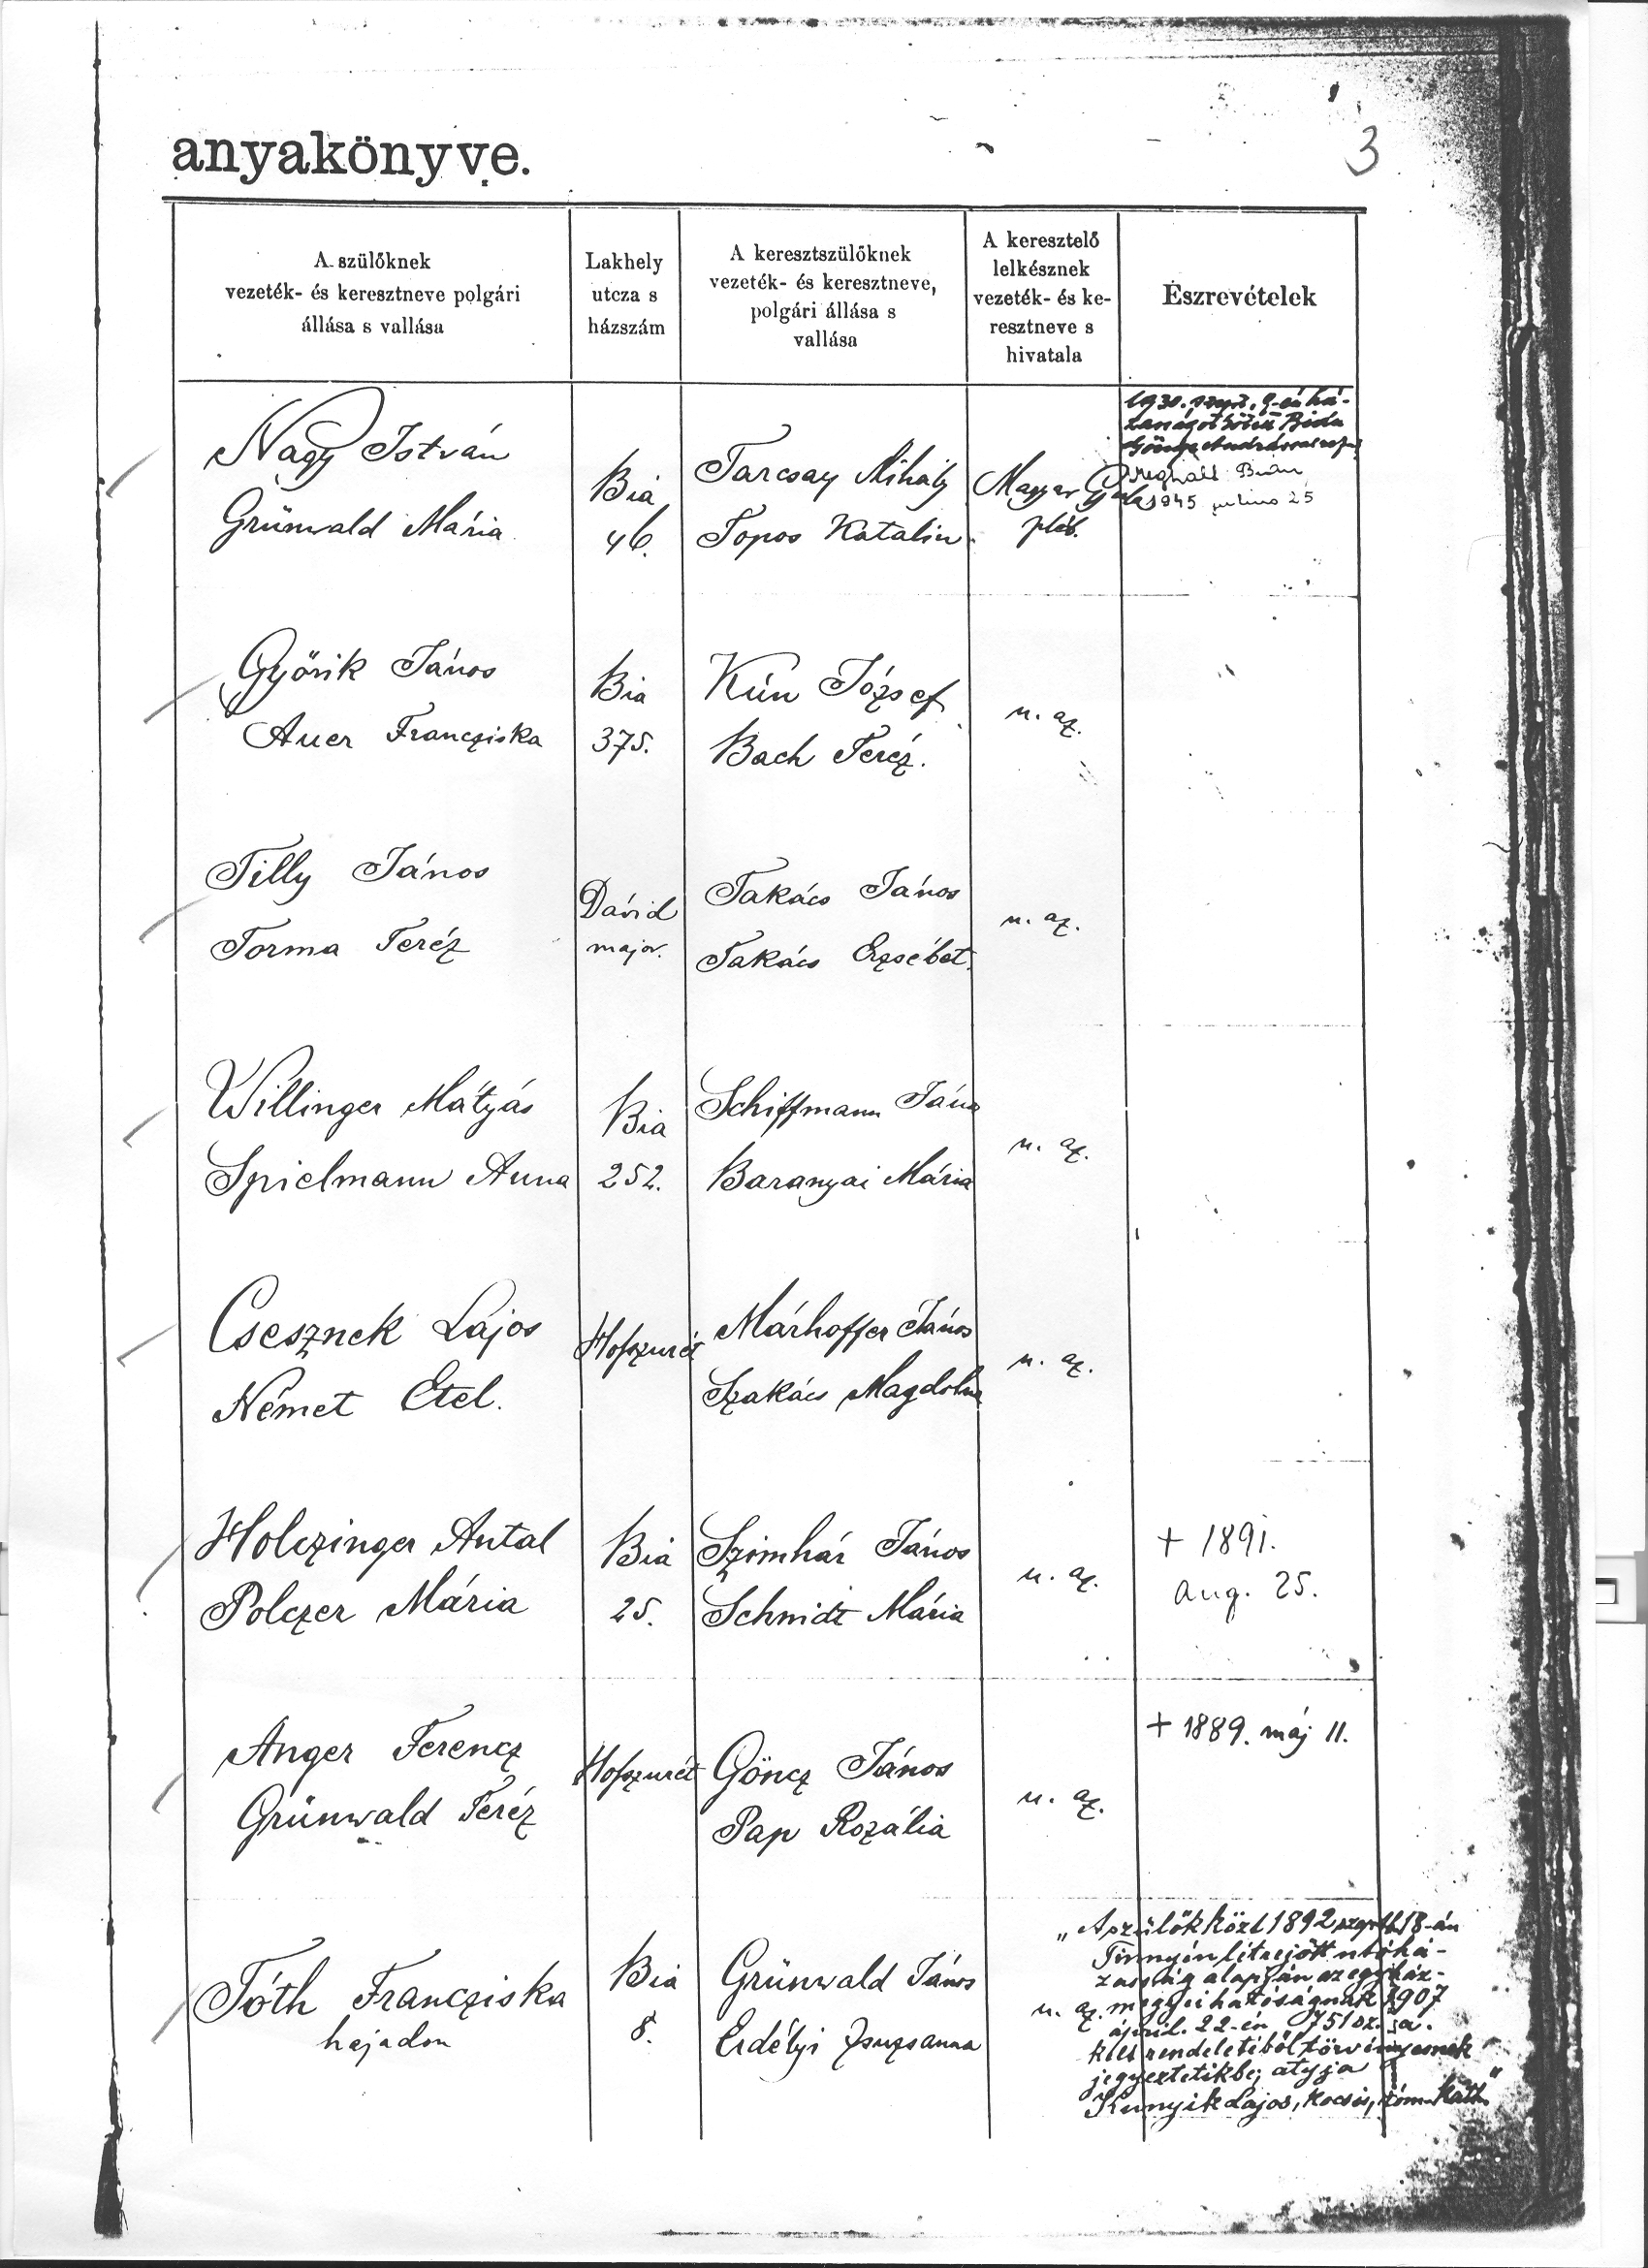 anyakönyve.
3
A szülőknek
vezeték- és keresztneve polgári
állása s vallása
Lakhely
utcza s
házszám
A keresztszülőknek
vezeték- és keresztneve,
polgári állása s
vallása
A keresztelő
lelkésznek
vezeték- és ke-
resztneve s
hivatala
Észrevételek
Nagy István
Grünwald Mária
Bia
46.
Tarcsay Mihály
Topos Katalin
Magyar Gyula
pléb.
1930. szept. 9-én há-
zasságot kötött Bián
Meghalt Bián
1945 julius 25
Győrik János
Auer Francziska
Bia
375.
Kún József
Bach Teréz.
u. az.
Tilly János
Torma Teréz
Dávid
major.
Takács János
Takács Erzsébet.
u. az.
Willinger Mátyás
Spielmann Anna
Bia
252.
Schiffmann János
Baranyai Mária
u. az.
Csesznek Lajos
Német Etel.
Hofszurét
Márhoffer János
Szakács Magdolna
u. az.
Holczinger Antal
Polczer Mária
Bia
25.
Szimhár János
Schmidt Mária
u. az.
+ 1891.
aug. 25.
Anger Ferencz
Grünwald Teréz
Hofszurét
Göncz János
Pap Rozália
u. az.
+ 1889. máj 11.
Tóth Francziska
hajadon
Bia
8.
Grünwald János
Erdélyi Zsuzsanna
u. az.
„A szülők közt 1892 szept. 18-án
Tinnyén létrejött utóhá-
zasság alapján az egyház-
megyei hatóságnak 1907
ápril. 22-én 751 sz. a.
kelt rendeletéből törvényesnek
jegyeztetik be; atyja
Kunyik Lajos, kocsis, róm. kath."